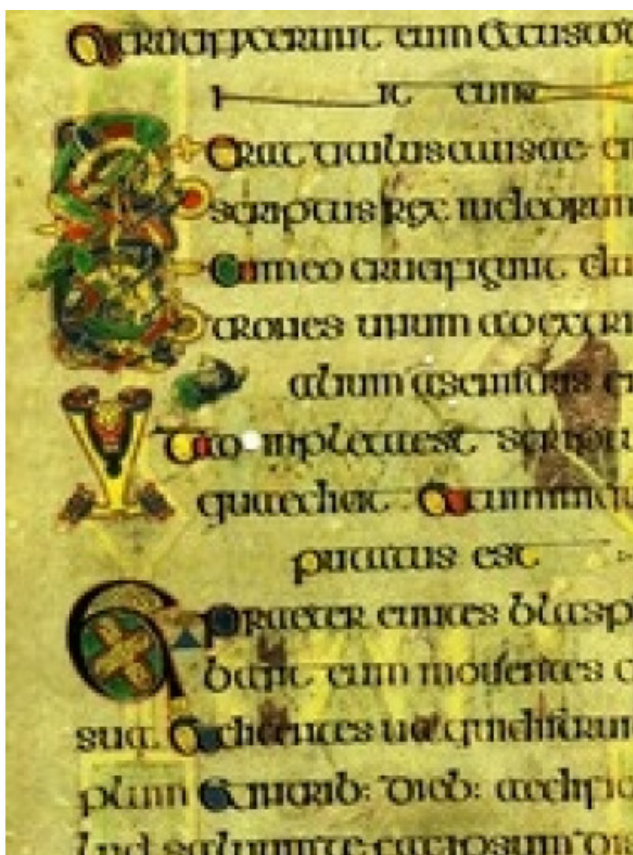 Et crucifixerunt eum Et custodi
nt eum
Et Erat titulus causae ei
scriptus rex iudeorum
Et cum eo crucifigunt du
trones unum a dextri
alium a sinistris e
Et adimpleta est scriptu
quae dicit Et cum iniqu
putatus est
Et praeter euntes blasp
bant eum mouentes c
sua. Et dicentes ua qui distruit
plum Et in trib: dieb: aedific
lud saluum